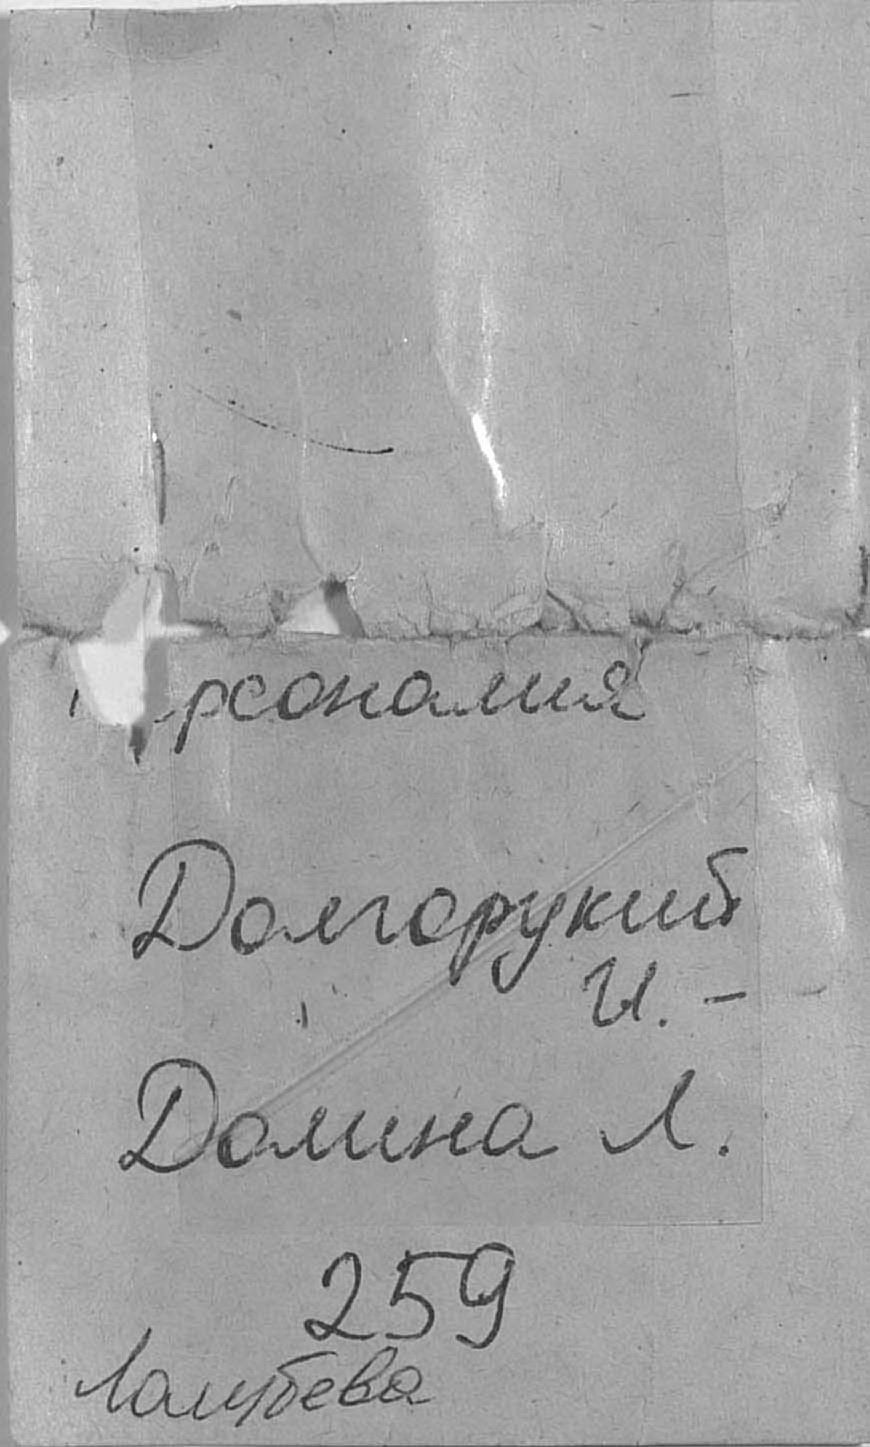 рсоналия
Долгорукий
И. –
Долина Л.
259
Голубева